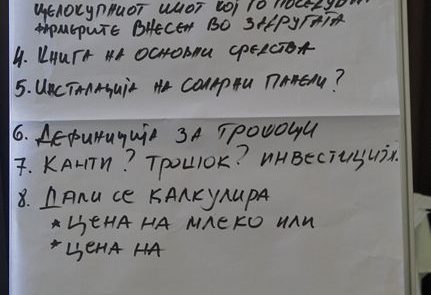 ЦЕЛОКУПНИОТ ИМОТ КОЈ ГО ПОСЕДУВА
ФАРМЕРИТЕ ВНЕСЕН ВО ЗАДРУГАТА
4. КНИГА НА ОСНОВНИ СРЕДСТВА
5. ИНСТАЛАЦИЈА НА СОЛАРНИ ПАНЕЛИ?
6. ДЕФИНИЦИЈА ЗА ТРОШОЦИ
7. КАНТИ? ТРОШОК? ИНВЕСТИЦИЈА.
8. ДАЛИ СЕ КАЛКУЛИРА
* ЦЕНА НА МЛЕКО ИЛИ
* ЦЕНА НА